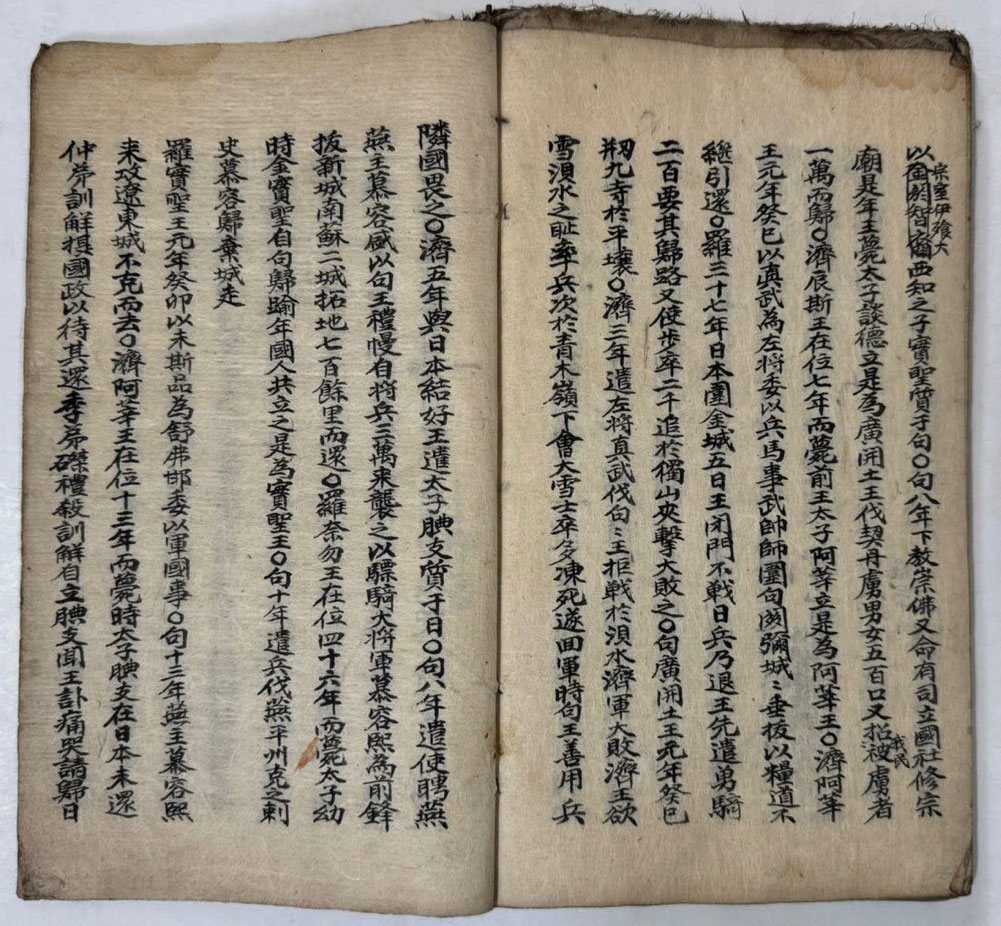 以金閼智裔西知之子實聖質于句〇句八年下教崇佛又命有司立國社修宗
宗室伊飡大
廟是年王薨太子談德立是為廣開土王伐契丹虜男女五百口又招被虜者
我民
一萬而歸〇濟辰斯王在位七年而薨前王太子阿莘立是為阿莘王〇濟阿莘
王元年癸巳以真武為左将委以兵馬事武帥師圍句関彌城〻垂拔以糧道不
継引還〇羅三十七年日本圍金城五日王閉門不戦日兵乃退王先遣勇騎
二百要其歸路又使步卒二千追於獨山夾擊大敗之〇句廣開土王元年癸巳
刱九寺於平壤〇濟三年遣左将真武伐句〻王拒戦於浿水濟軍大敗濟王欲
雪浿水之耻率兵次於青木嶺下會大雪士卒多凍死遂回軍時句王善用兵
隣國畏之〇濟五年與日本結好王遣太子腆支質于日〇句八年遣使聘燕
燕王慕容盛以句王禮慢自将兵三萬来襲之以驃騎大将軍慕容熙為前鋒
拔新城南蘇二城拓地七百餘里而還〇羅奈勿王在位四十六年而薨太子幼
時金實聖自句歸踰年國人共立之是為實聖王〇句十年遣兵伐燕平州克之刺
史慕容歸棄城走
羅實聖王元年癸卯以未斯品為舒弗邯委以軍國事〇句十三年燕主慕容熙
来攻遼東城不克而去〇濟阿莘王在位十三年而薨時太子腆支在日本未還
仲弟訓解摄國政以待其還季弟磼禮殺訓解自立腆支聞王訃痛哭請歸日